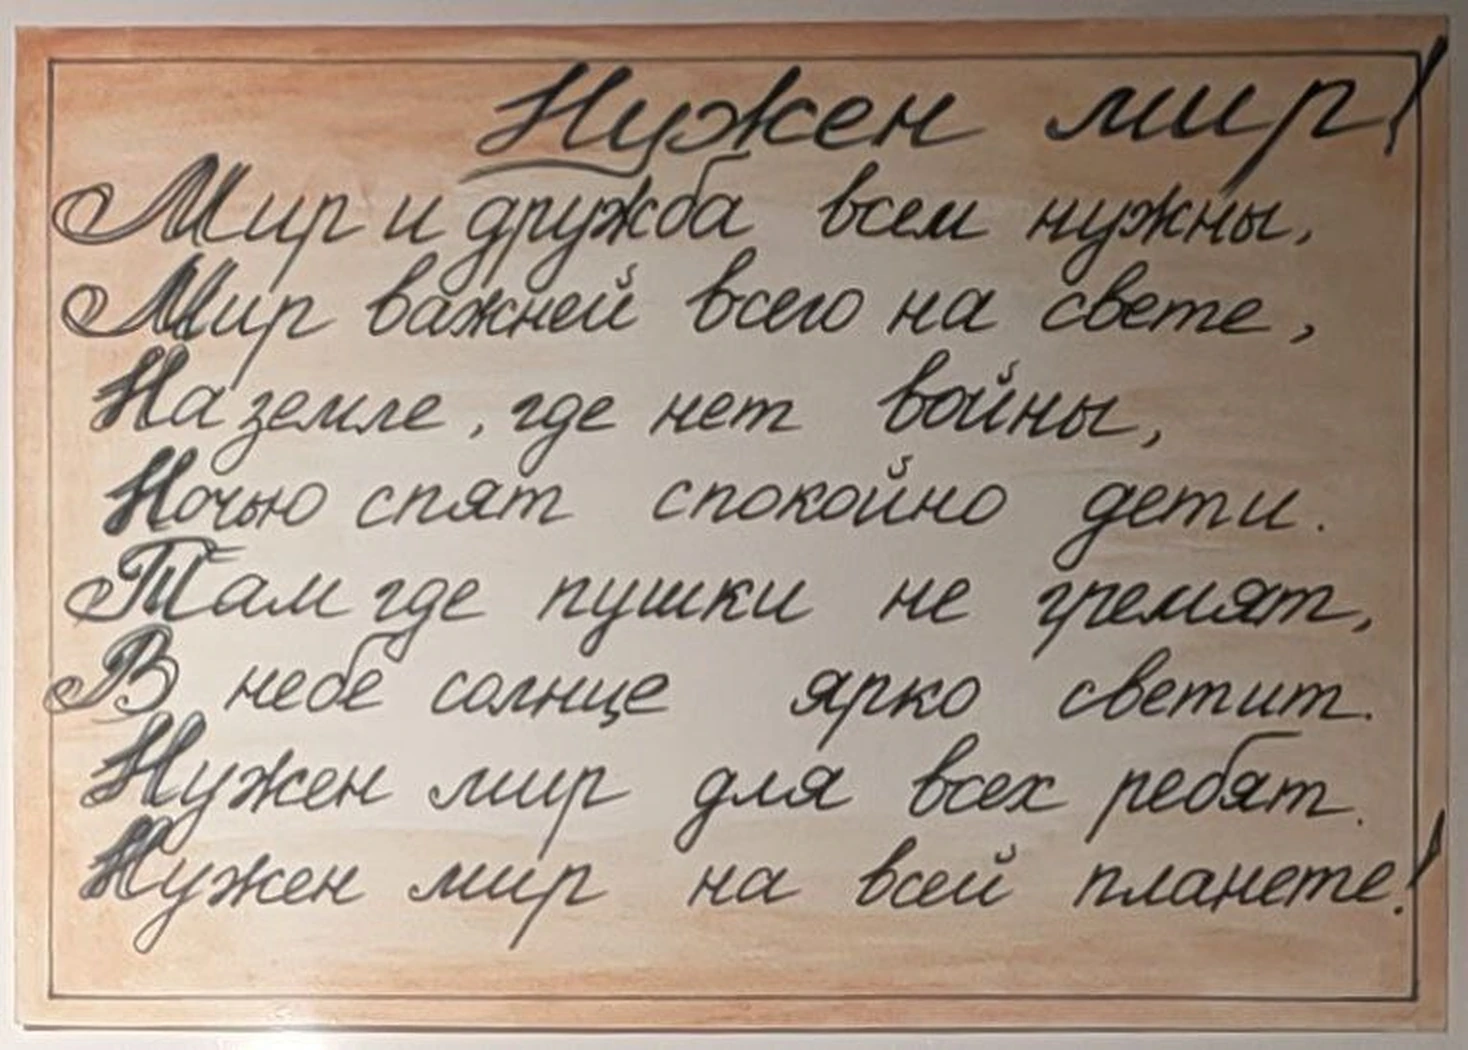 Нужен мир!
Мир и дружба всем нужны,
Мир важней всего на свете,
На земле, где нет войны,
Ночью спят спокойно дети.
Там где пушки не гремят,
В небе солнце ярко светит.
Нужен мир для всех ребят.
Нужен мир на всей планете!